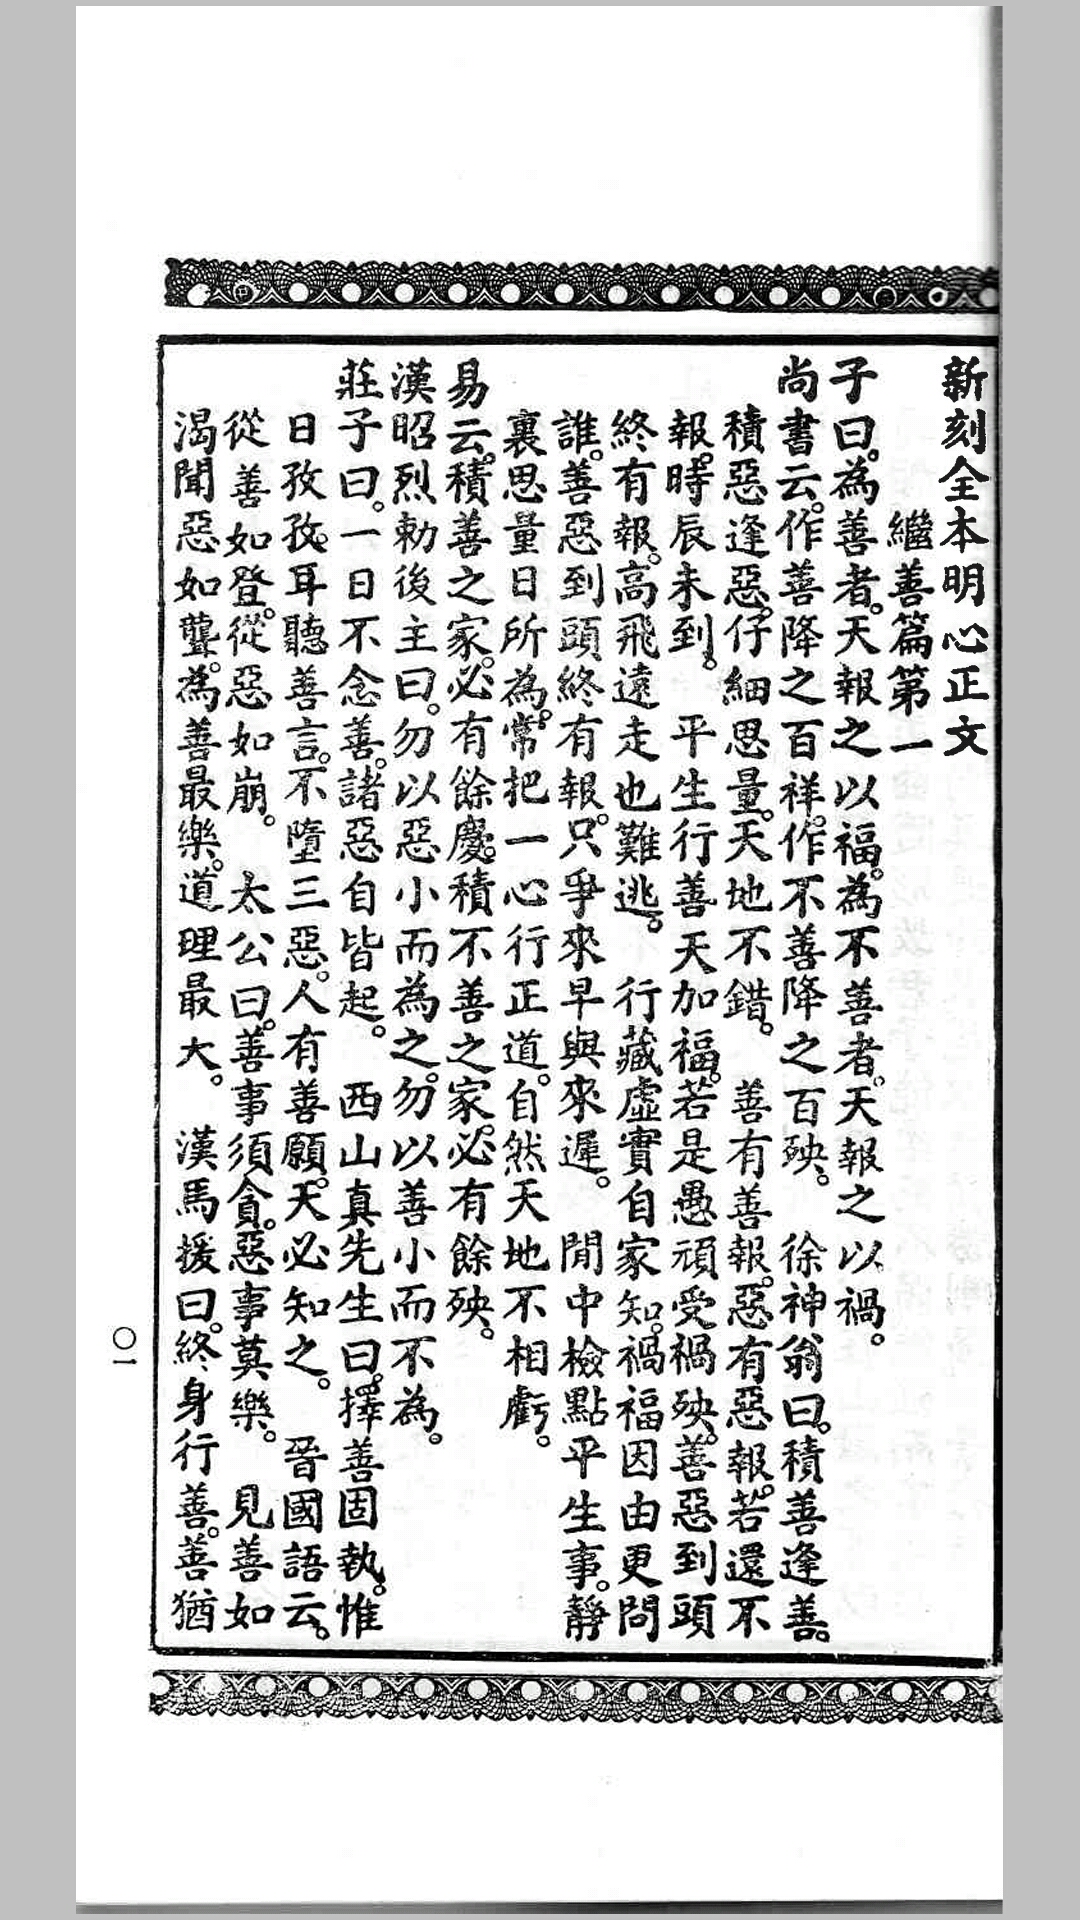 新刻全本明心正文
繼善篇第一
子曰。為善者。天報之以福。為不善者。天報之以禍。
尚書云。作善降之百祥。作不善降之百殃。 徐神翁曰。積善逢善。
積惡逢惡。仔細思量。天地不錯。 善有善報。惡有惡報。若還不
報。時辰未到。 平生行善天加福。若是愚頑受禍殃。善惡到頭
終有報。高飛遠走也難逃。 行藏虛實自家知。禍福因由更問
誰。善惡到頭終有報。只爭來早與來遲。 閒中檢點平生事。靜
裏思量日所為。常把一心行正道。自然天地不相虧。
易云。積善之家。必有餘慶。積不善之家。必有餘殃。
漢昭烈勅後主曰。勿以惡小而為之。勿以善小而不為。
莊子曰。一日不念善。諸惡自皆起。 西山真先生曰。擇善固執。惟
日孜孜。耳聽善言。不墮三惡。人有善願。天必知之。 晉國語云。
從善如登。從惡如崩。 太公曰。善事須貪。惡事莫樂。 見善如
渴聞惡如聾。為善最樂。道理最大。 漢馬援曰。終身行善。善猶
〇一